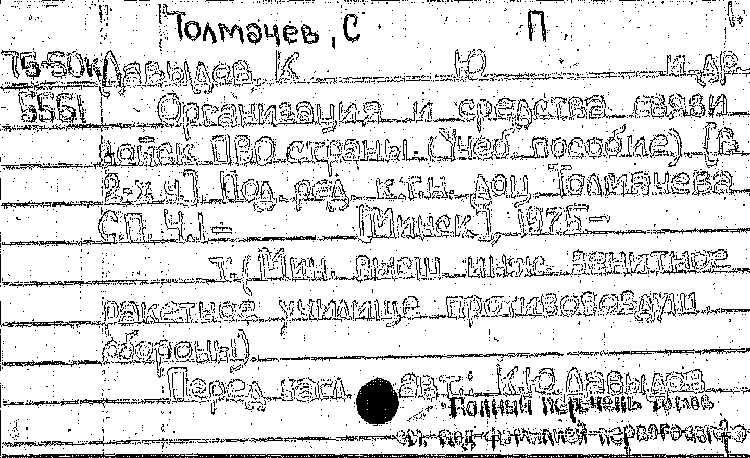 Толмачев, С П 1.
75-50к Давыдов, К Ю и др.
5561 Организация и средства связи
войск ПВО страны. (Учеб. пособие) [В
2-х ч]. Под. ред. к.т.н. доц Толмачева
С.П. Ч.1- [Минск], 1975-
т. (Мин. высш. инж. зенитное
ракетное училище противовоздуш.
обороны).
Перед загл. авт.: К.Ю. Давыдов
Полный перечень томов
см. под фамилией первого автора